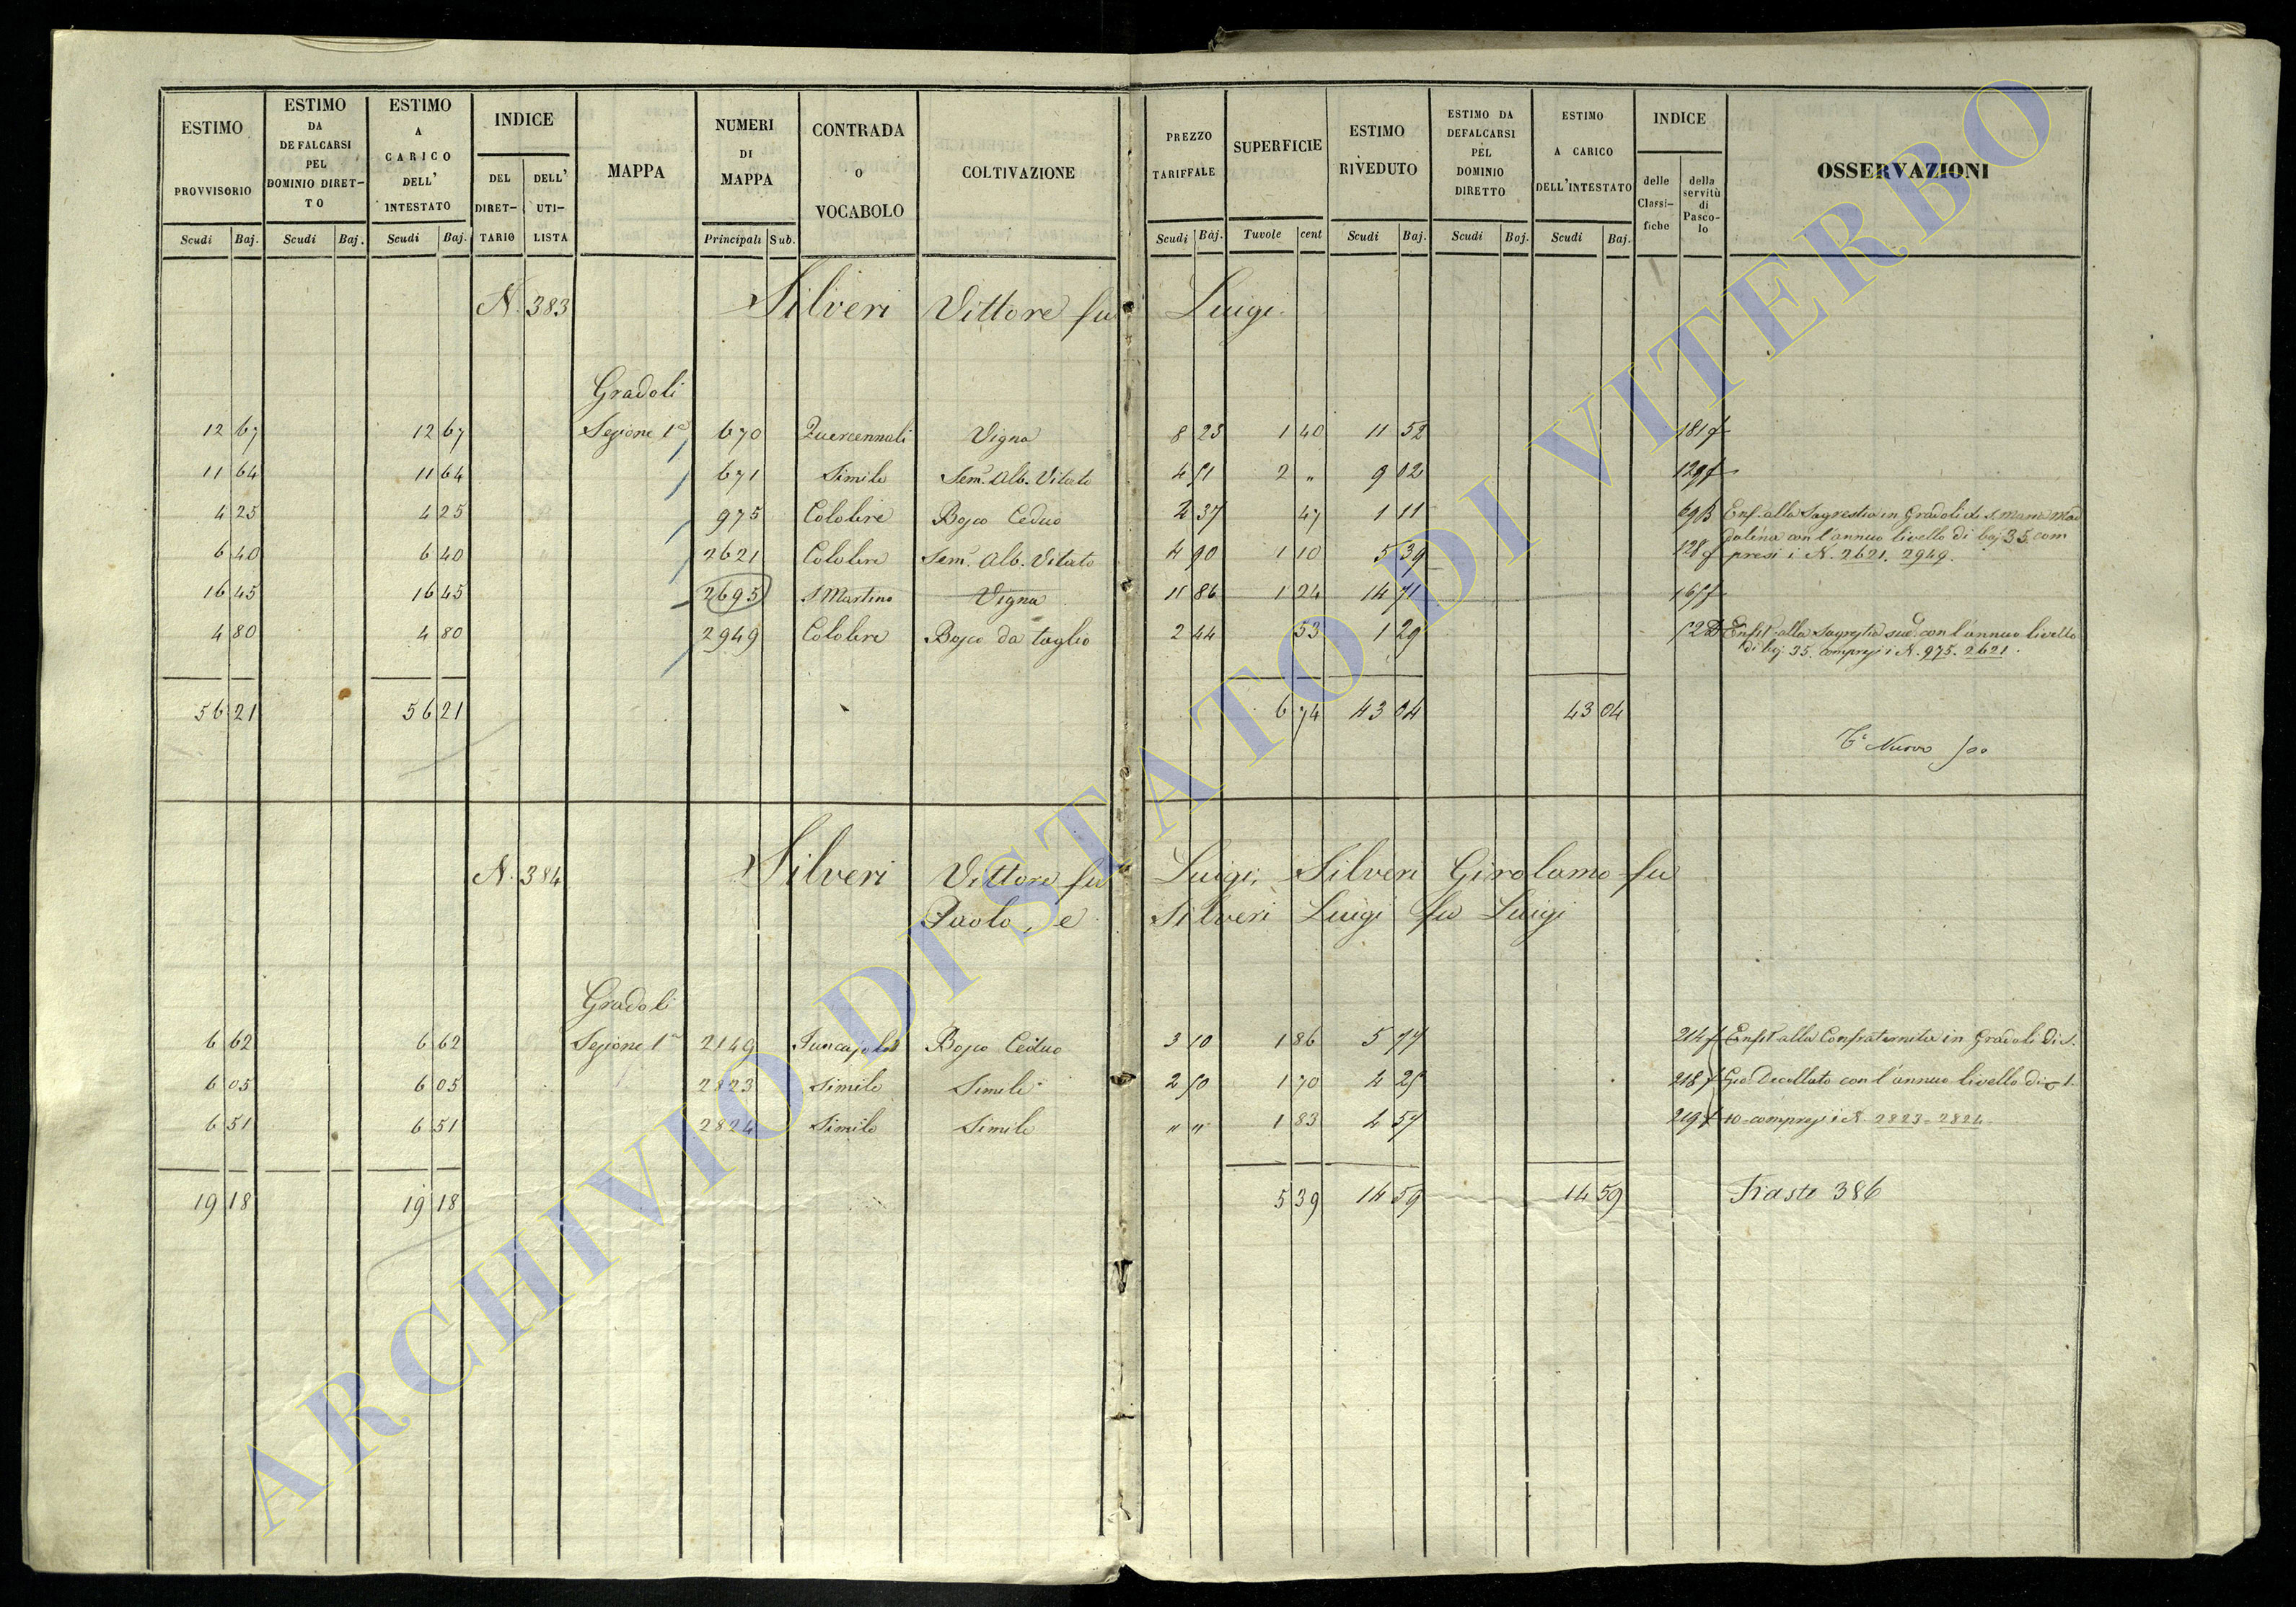 ESTIMO PROVVISORIO Scudi Baj.
ESTIMO DA DEFALCARSI PEL DOMINIO DIRET-TO Scudi Baj.
ESTIMO A CARICO DELL' INTESTATO Scudi Baj.
INDICE DEL DIRET-TARIO DELL' UTI-LISTA
MAPPA
NUMERI DI MAPPA Principali Sub.
CONTRADA O VOCABOLO
COLTIVAZIONE
PREZZO TARIFFALE Scudi Baj.
SUPERFICIE Tavole cent
ESTIMO RIVEDUTO Scudi Baj.
ESTIMO DA DEFALCARSI PEL DOMINIO DIRETTO Scudi Baj.
ESTIMO A CARICO DELL'INTESTATO Scudi Baj.
INDICE delle Classi-fiche della servitù di Pasco-lo
OSSERVAZIONI
N. 383 Silveri Vittore fu Luigi
Gradoli
12 67 12 67 Sezione 1a 670 Quercennali Vigna 8 23 1 40 11 52 181 f
11 64 11 64 671 Simile Sem. Alb. Vitato 4 51 2 " 9 02 129 f
4 25 4 25 975 Colobre Bosco Ceduo 2 37 47 1 11 69 B Enf. alla Sagrestia in Gradoli di S. Maria Mad
dalena con l'annuo livello di baj 35. com
6 40 6 40 2621 Colobre Sem. Alb. Vitato 4 90 1 10 5 39 128 f presi i N. 2621. 2949.
16 45 16 45 2695 S Martino Vigna 11 86 1 24 14 71 165 f
4 80 4 80 2949 Colobre Bosco da taglio 2 44 53 1 29 52 Enfit. alla Sagrestia sud. con l'annuo livello
di baj 35. compresi i N. 975. 2621.
56 21 56 21 6 74 43 04 43 04
Nuovo
N. 384 Silveri Vittore fu Luigi; Silveri Girolamo fu
Paolo, e Silveri Luigi fu Luigi
Gradoli
6 62 6 62 Sezione 1a 2149 Bosco Ceduo 3 10 1 86 5 77 214 f Enfit alla Confraternita in Gradoli di S.
6 05 6 05 2823 Simile Simile 2 50 1 70 4 25 218 f Gio Decollato con l'annuo livello di 1.
6 51 6 51 2824 Simile Simile " " 1 83 4 57 219 f 10 compresi i N. 2823. 2824
19 18 19 18 5 39 14 59 14 59 386
ARCHIVIO DI STATO DI VITERBO